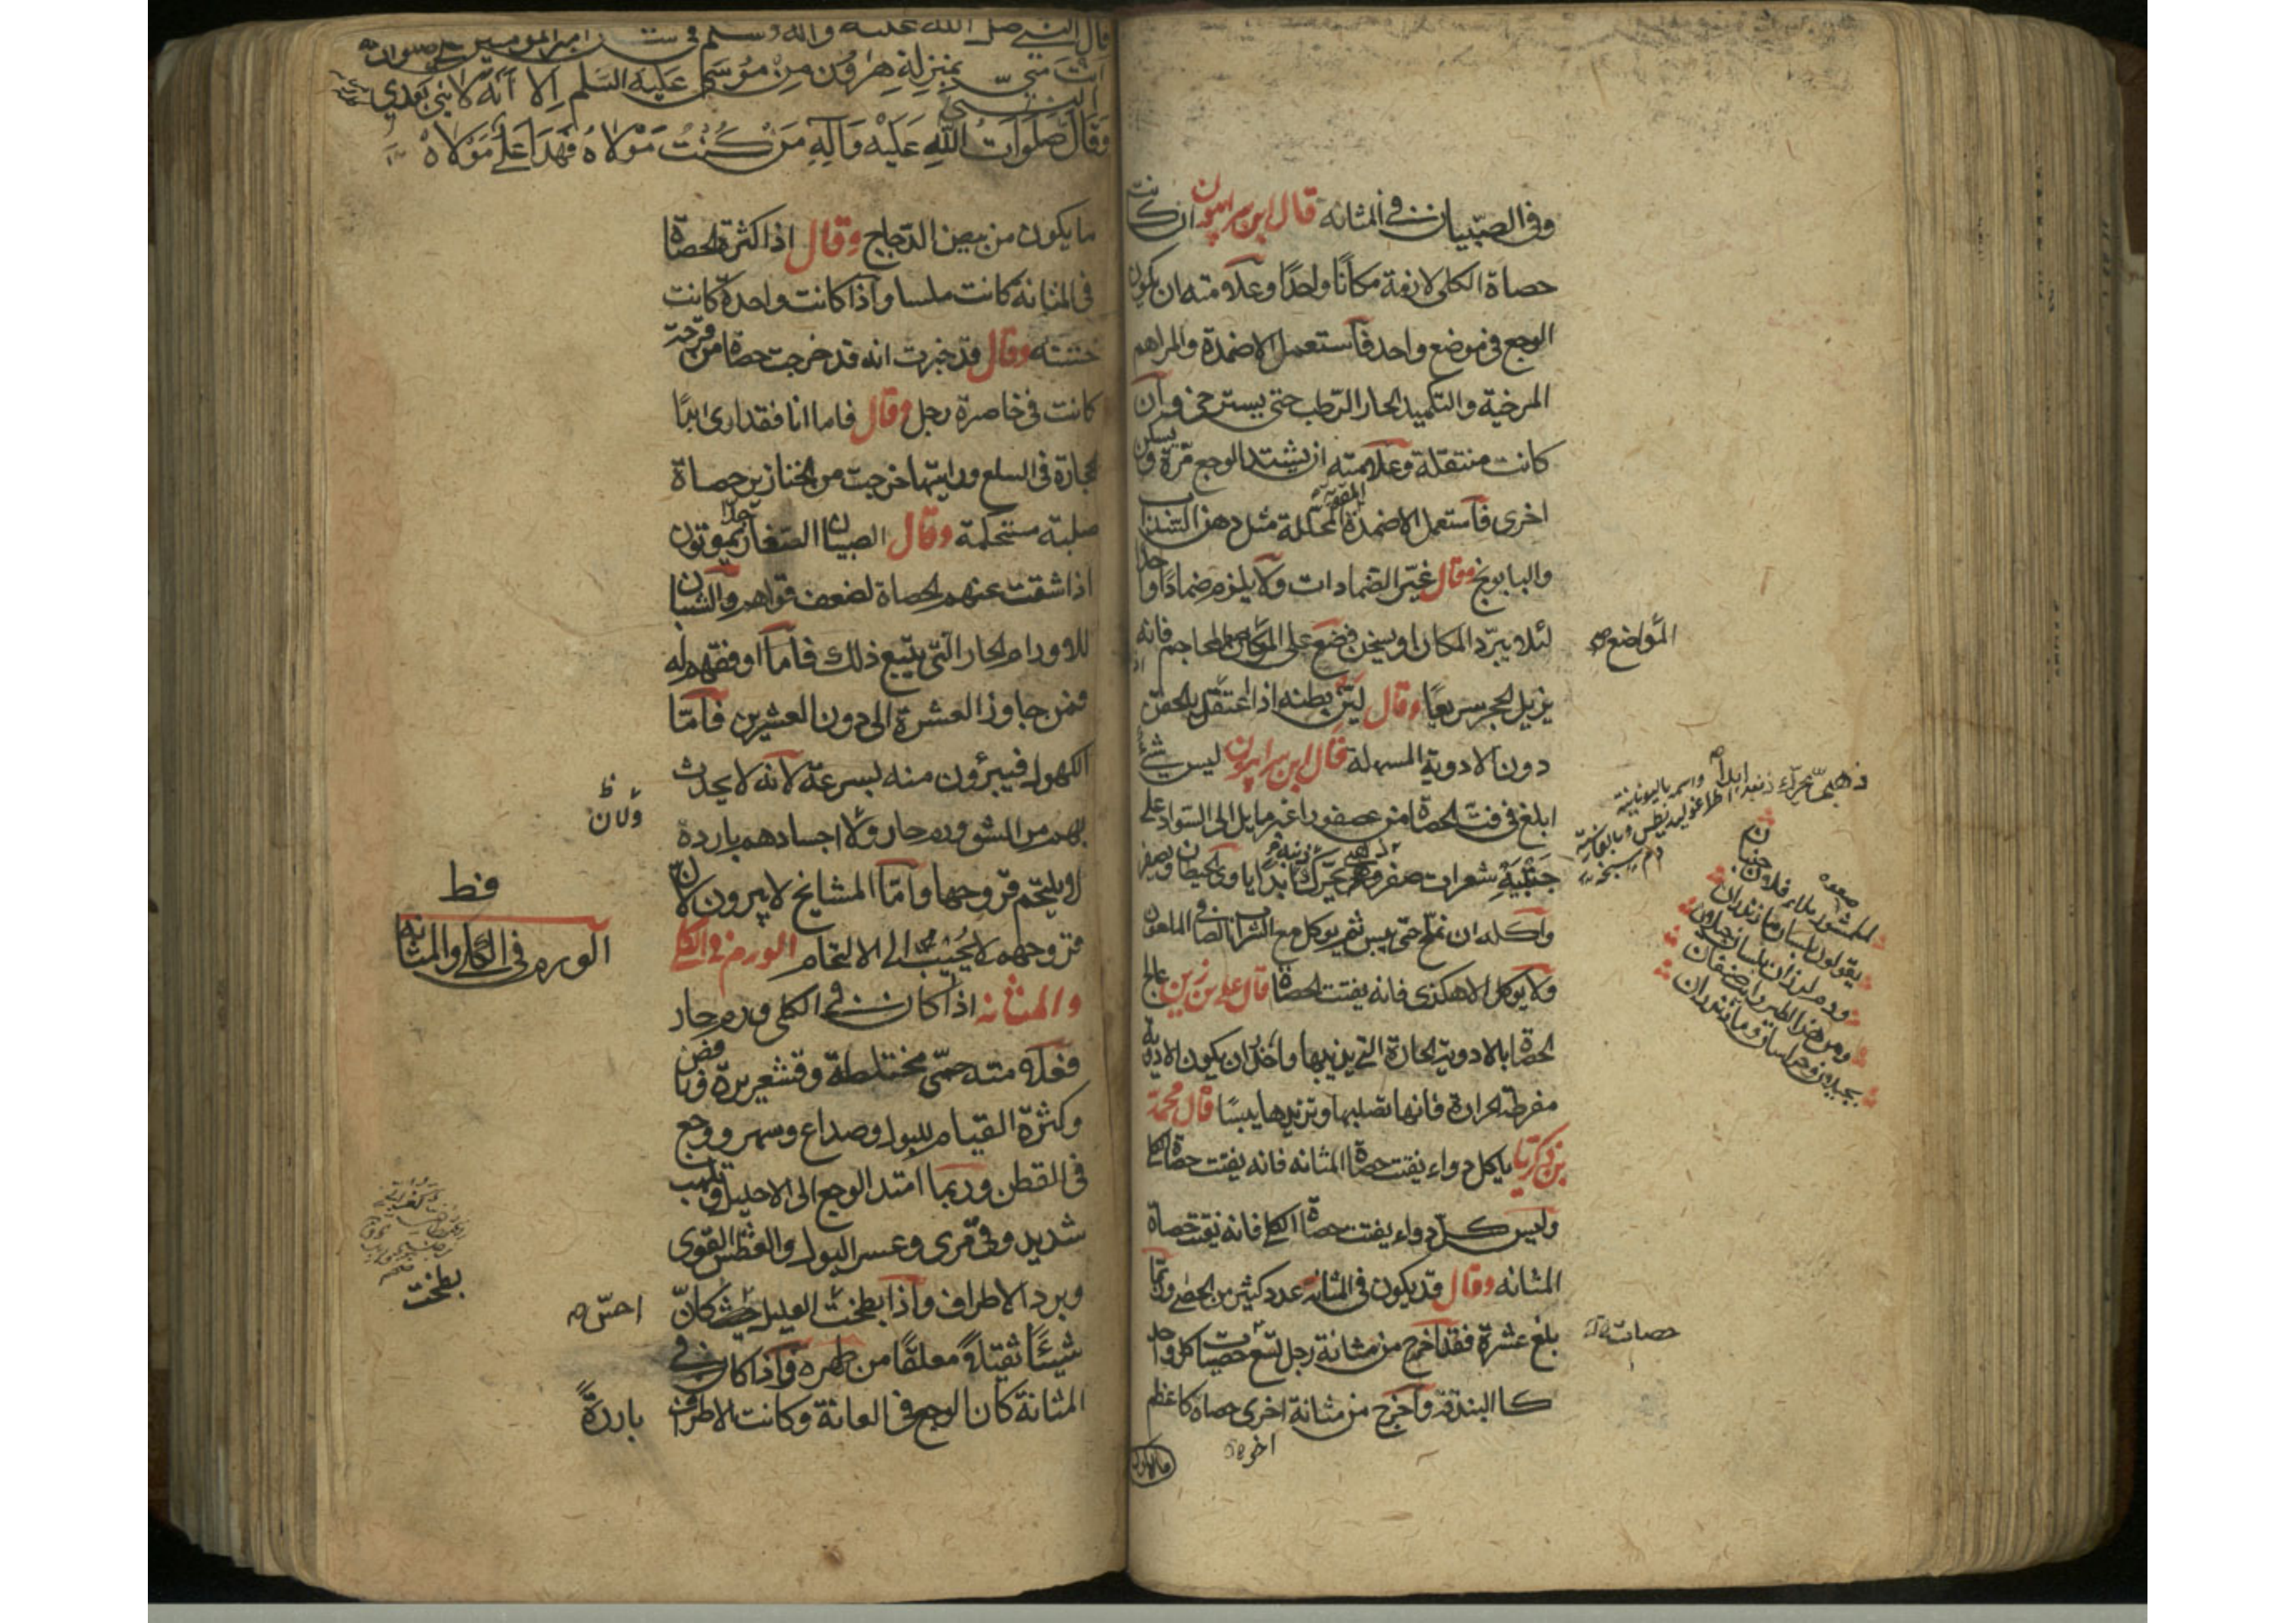 وفى الصبيان فى المثانه قال ابن سرابيون ان كانت
حصاة الكلى لازمة مكانا واحدا وعلامته ان يكون
الوجع فى موضع واحد فاستعمل الاضمدة والمراهم
المرخية والتكميد الحار الرطب حتى يسترخى وان
كانت منتقلة وعلامته ان يشتد الوجع مرة ويسكن
اخرى فاستعمل الاضمدة المقوية المحللة مثل دهن السنداب
والبابونج وقال غير الضمادات ولا يلزم ضمادا واحدا
لئلا يبرد المكان او يسخن فضع على المكان المحاجم فانه
المواضع
يزيل الحجر سريعا وقال لين بطنه اذا اعتقل بالحقن
دون الادوية المسهلة قال ابن سرابيون ليس شئ
ابلغ فى فت الحصاة من عصفور اغبر مايل الى السواد على
جنبيه شعرات صفر يحرك ذنبه ابدا ياوى الحيطان ويصفر
واكله ان يملح حتى ييبس ثم يوكل مع الشراب الصافى
ولا يوكل الا هكذى فانه يفتت الحصاة قال على بن زين عالج
الحصاة بالادوية الحارة التى يذيبها واحذر ان يكون الادوية
مفرطة الحرارة فانها تصلبها وتزيدها يبسا قال محمد
بن زكريا كل دواء يفتت حصاة المثانه فانه يفتت حصاة الكلى
وليس كل دواء يفتت حصاة الكلى فانه يفتت حصاة
المثانه وقال قد يكون فى المثانة عدد كثير من الحصى وربما
بلغ عشرة فقد اخرج من مثانة رجل تسع حصيات كل واحد
حصات
كالبندقة واخرج من مثانة اخرى حصاة كاعظم
اخر
ذهبى يحرك ذنبه ابدا واسمه باليونانية
قال النبى صلى الله عليه واله وسلم فى امير المومنين على
انت منى بمنزلة هرون من موسى عليه السلم الا انه لا نبى بعدي
وقال صلوات الله عليه وآله من كنت مولاه فهذا على مولاه
ما يكون من بيض الدجاج وقال اذا كثرت الحصاة
فى المثانة كانت ملسا واذا كانت واحدة كانت
خشنه وقال قد خبرت انه قد خرجت حصاة من قرحة
كانت فى خاصرة رجل وقال فاما انا فقد ارى ابدا
حجارة فى السلع ورايتها خرجت من الخنازير حصاة
صلبة مستحكمة وقال الصبيان الصغار جدا يموتون
اذا شقت عنهم الحصاة لضعف قواهم والشبان
للاورام الحار التى يتبع ذلك فاما اوفقهم له
فمن جاوز العشرة الى دون العشرين فاما
الكهول فيبرؤن منه بسرعة لانه لا يحدث
بهم من الشق ورم حار ولا اجسادهم باردة
ولان
لا يلتحم قروحها واما المشايخ لا يبرون لان
قط
قروحهم لا يجيب الى الالتحام الورم فى الكلى
الورم فى الكلى والمثانة
والمثانه اذا كان فى الكلى ورم حار
فعلامته حمى مختلطة وقشعريرة ونافض
وكثرة القيام للبول وصداع وسهر ووجع
فى القطن وربما امتد الوجع الى الاحليل ولهيب
شديد وقى مرى وعسر البول والعطش القوى
وبرد الاطراف واذا بطحت العليل حس كان
بطحت
احس
شيئا ثقيلا معلقا من ظهره واذا كان فى
المثانة كان الوجع فى العانة وكانت الاطراف باردة